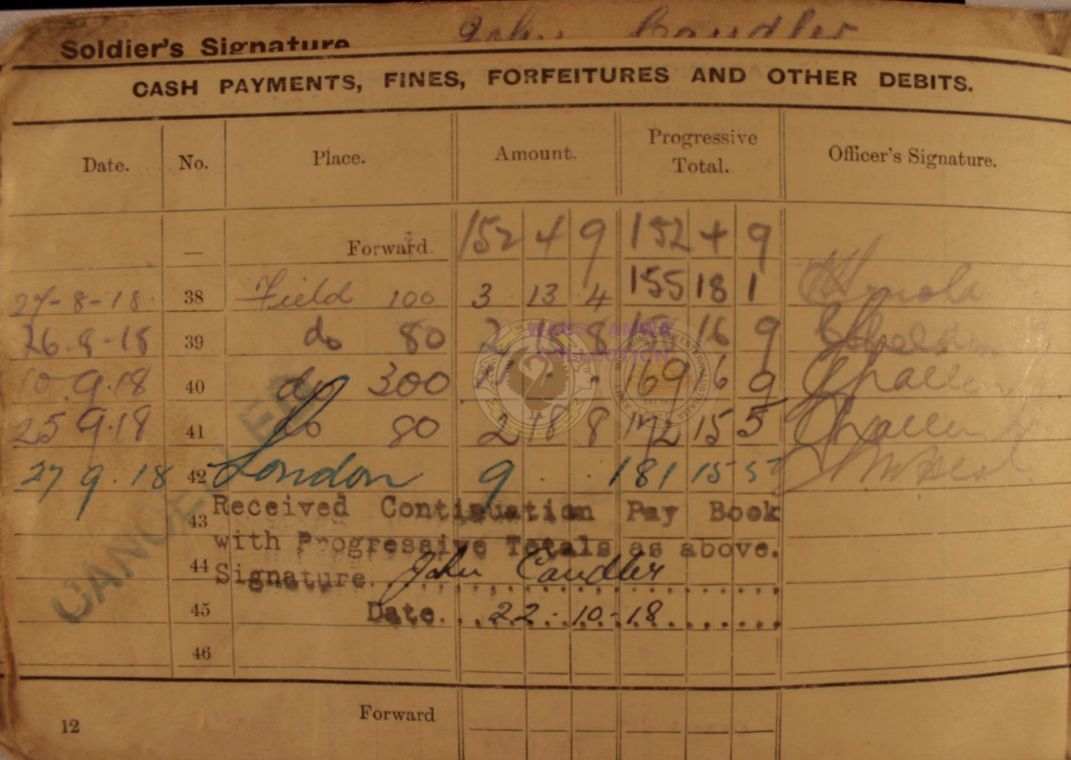 Soldier's Signature John Candler
CASH PAYMENTS, FINES, FORFEITURES AND OTHER DEBITS.
Date. No. Place. Amount. Progressive Total. Officer's Signature.
— Forward. 152 4 9 152 4 9
27-8-18. 38 Field 100 3 13 4 155 18 1
39 do 80 2 18 8 16 9
10.9.18 40 do 300 169 16 9
25 9.18 41 do 80 2 18 8 172 15 5
27 9.18 42 London 9 . . 181 15 5
43 Received Continuation Pay Book
with Progressive Totals as above.
44 Signature. John Candler
45 Date. 22-10-18
46
12 Forward
WAUST ANWA
COLLECTION